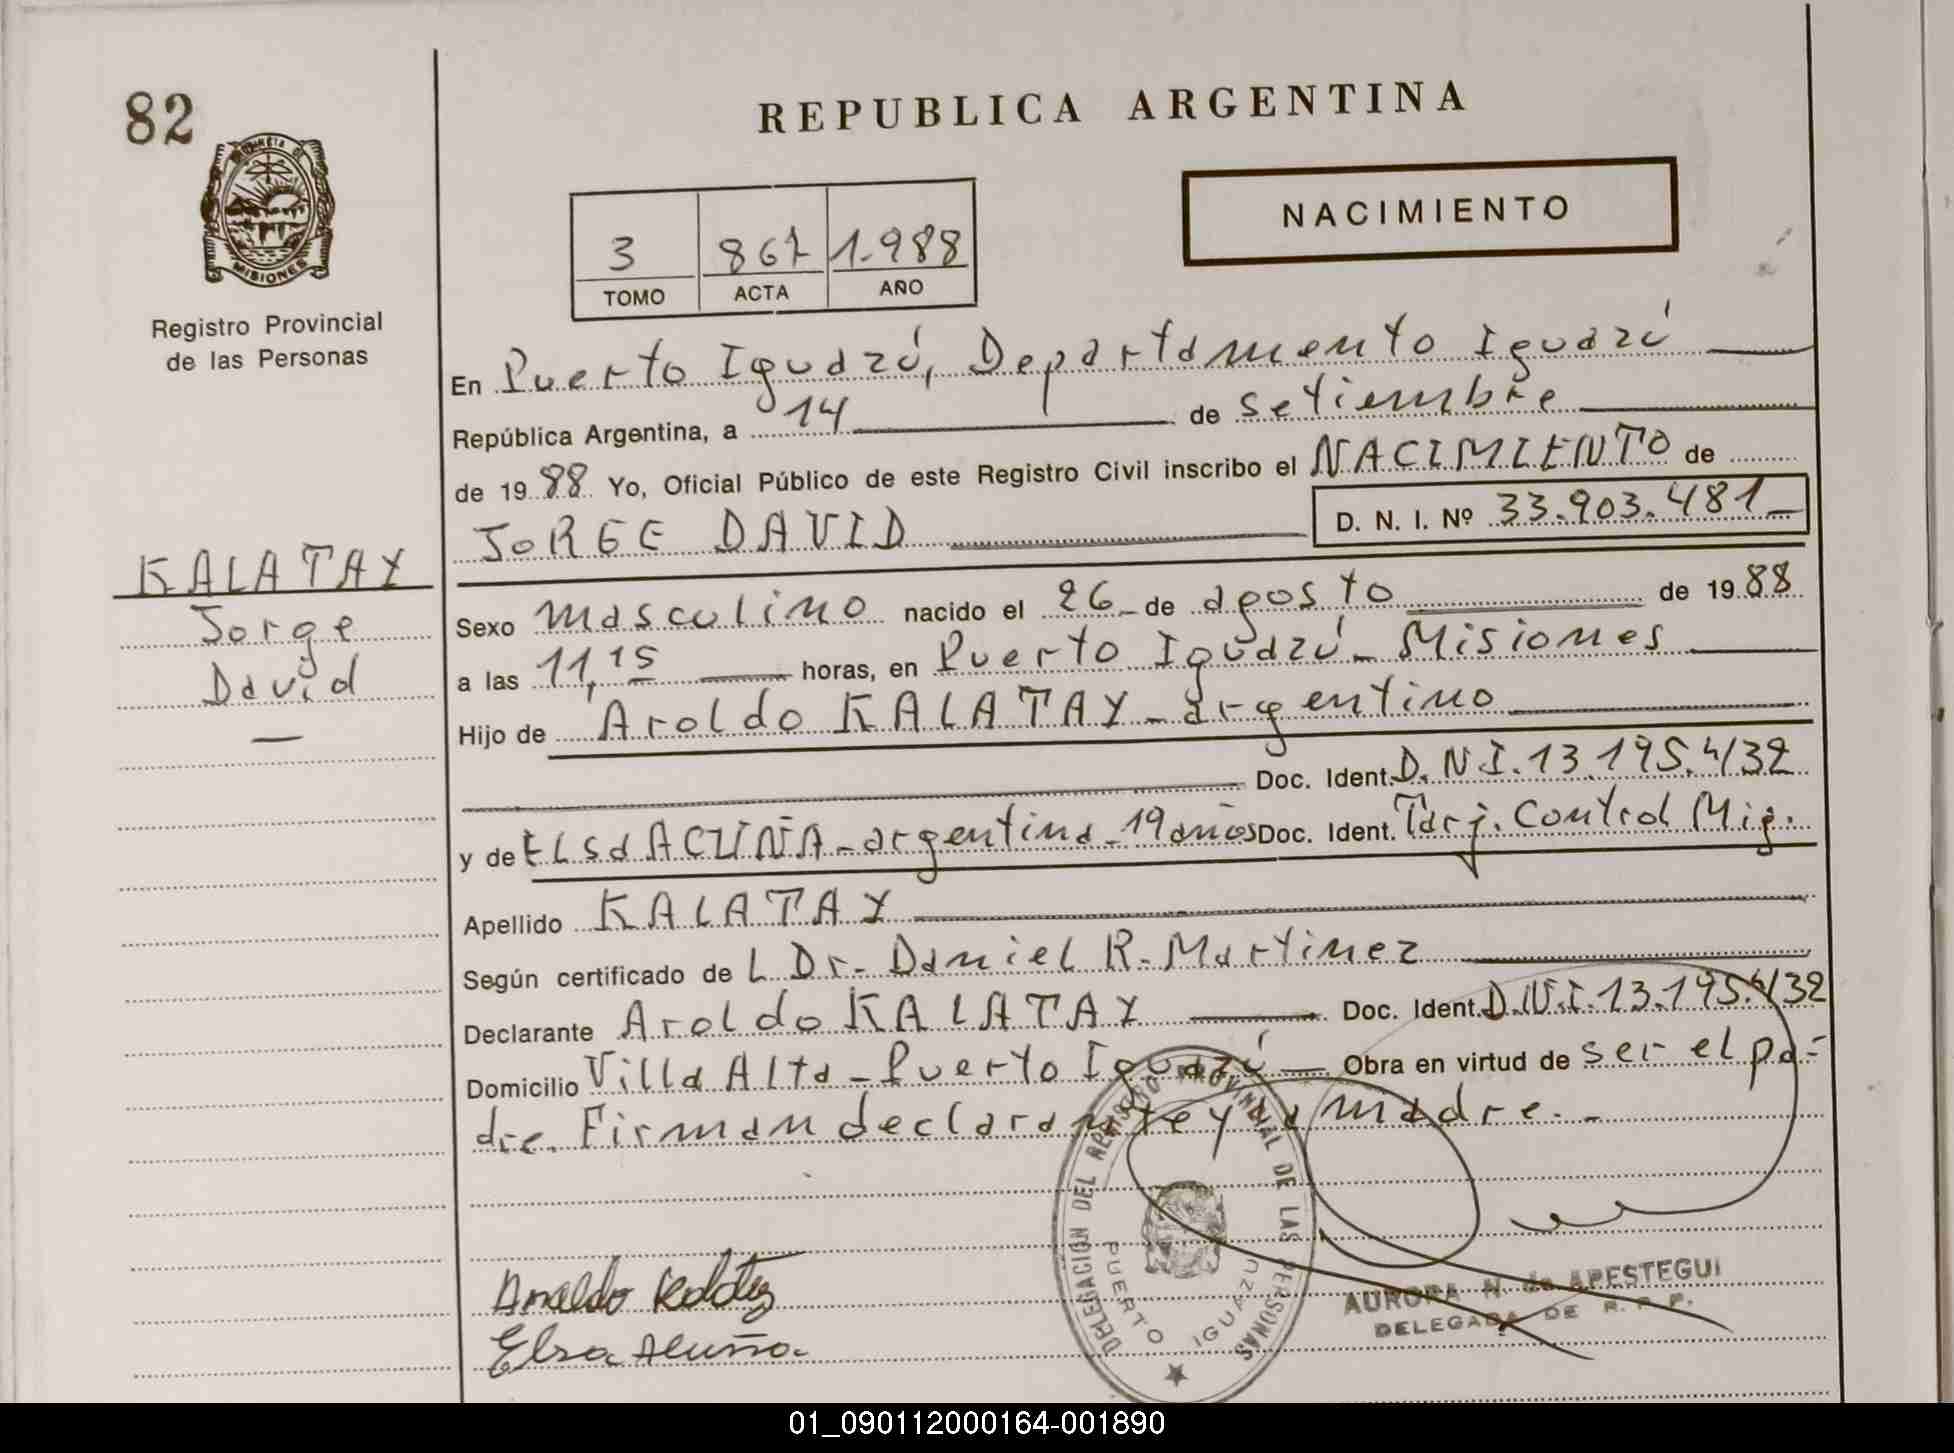 82
REPUBLICA ARGENTINA
NACIMIENTO
3 867 1.988
TOMO ACTA AÑO
MISIONES
Registro Provincial
de las Personas
En Puerto Iguazú, Departamento Iguazú
República Argentina, a 14 de setiembre
de 1988 Yo, Oficial Público de este Registro Civil inscribo el NACIMIENTO de
JORGE DAVID D. N. I. Nº 33.903.481
KALATAY
Jorge
David
Sexo masculino nacido el 26 de agosto de 1988
a las 11,15 horas, en Puerto Iguazú - Misiones
Hijo de Aroldo KALATAY - argentino
Doc. Ident. D.N.I. 13.195.432
y de Elsa ACUÑA - argentina - 19 años Doc. Ident. Tarj. Control Mig.
Apellido KALATAY
Según certificado de L Dr. Daniel R. Martinez
Declarante Aroldo KALATAY Doc. Ident. D.N.I. 13.195.432
Domicilio Villa Alta - Puerto Iguazú Obra en virtud de ser el pa-
dre. Firman declarante y la madre. -
DELEGACIÓN DEL REGISTRO PROVINCIAL DE LAS PERSONAS
PUERTO IGUAZU
AURORA N. de APESTEGUI
DELEGADA DE R. P. P.
Elsa Acuña
01_090112000164-001890